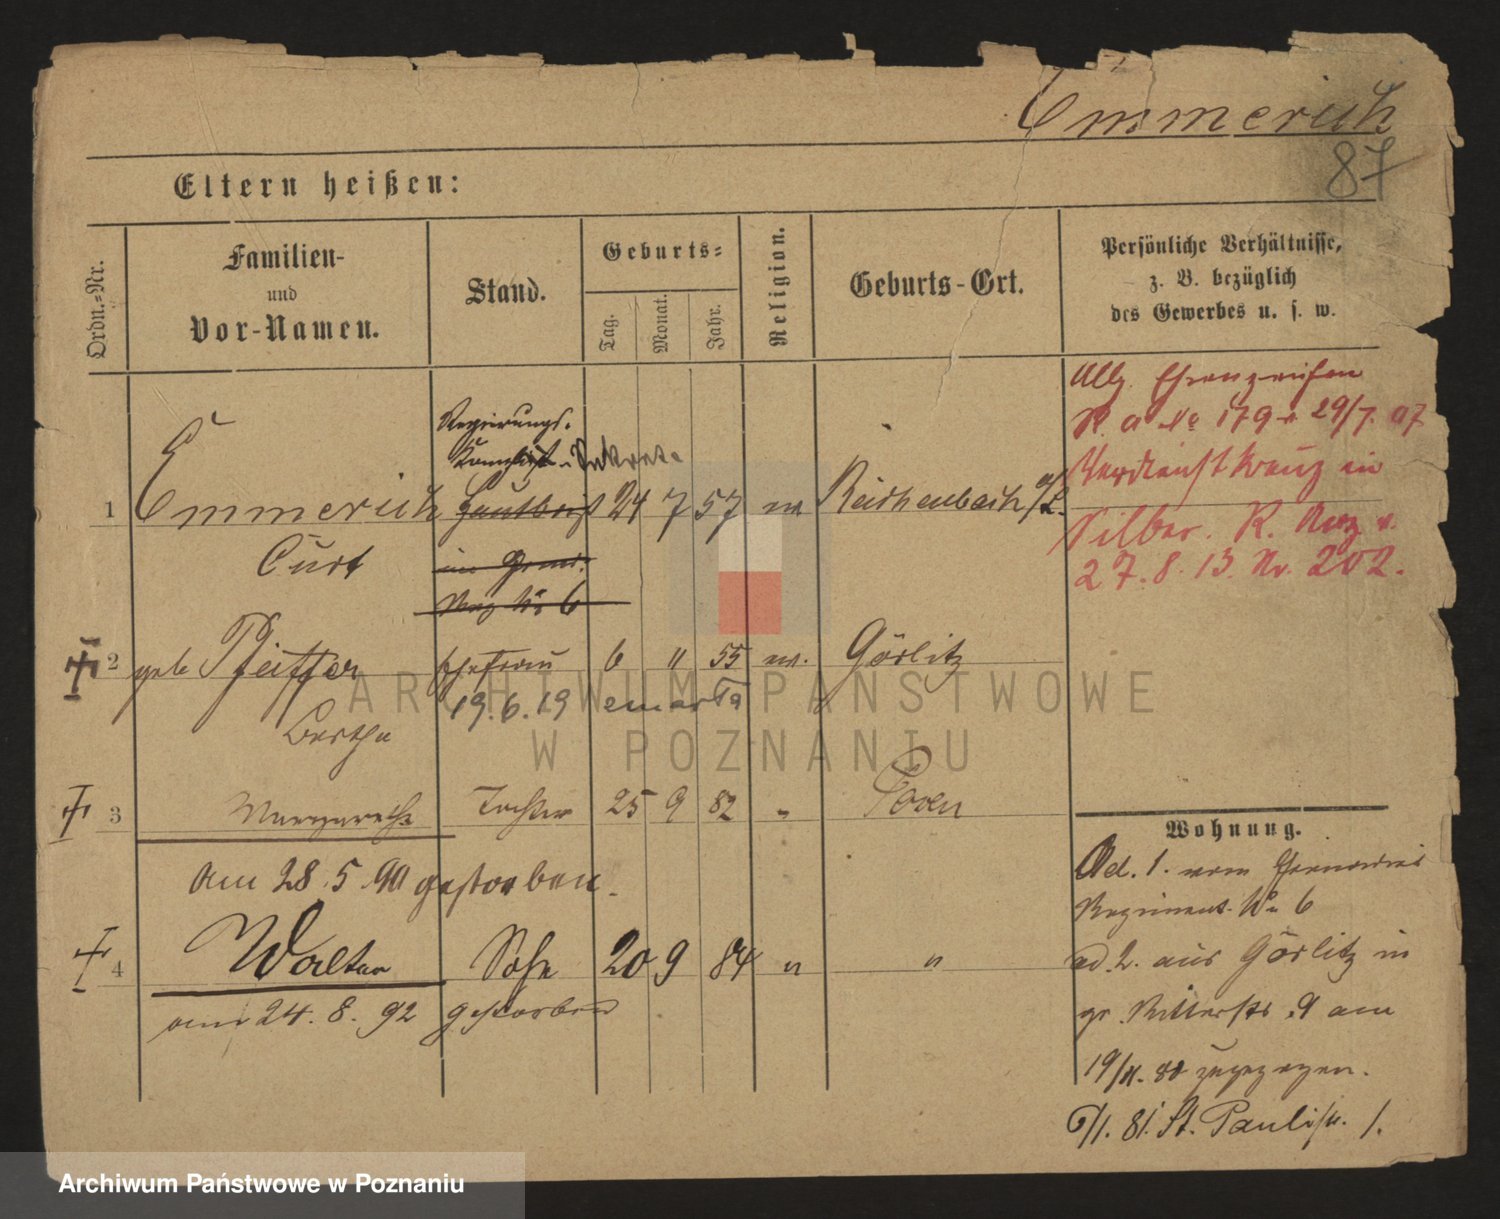 Emmerich
87
Eltern heißen:
Ordn.-Nr.
Familien-
und
Vor-Namen.
Stand.
Geburts-
Tag.
Monat.
Jahr.
Religion.
Geburts-Ort.
Persönliche Verhältnisse,
z. B. bezüglich
des Gewerbes u. s. w.
Allg. Ehrenzeichen
R. a No 179 v 29/7. 07
Verdienstkreuz in
Silber. R. Anz v.
27. 8. 13. Nr. 202.
Regierungs-
Sekret.
1 Emmerich 24 7 57 Reichenbach o/L.
Curt
No 6
2 geb Pfeiffer Ehefrau 6 " 55 ev. Görlitz
19. 6. 19
Bertha
3 Margarethe Tochter 25 9 82 " Posen
am 28. 5. 90 gestorben.
4 Walter Sohn 20 9 84 " "
am 24. 8. 92 gestorben
Wohnung.
Ad. 1. vom Grenadier
Regiment No 6
ad. 2. aus Görlitz in
gr. Ritterstr. 9 am
19/11. 80 zugezogen.
6/1. 81. St. Paulistr. 1.
ARCHIWUM PAŃSTWOWE
W POZNANIU
Archiwum Państwowe w Poznaniu